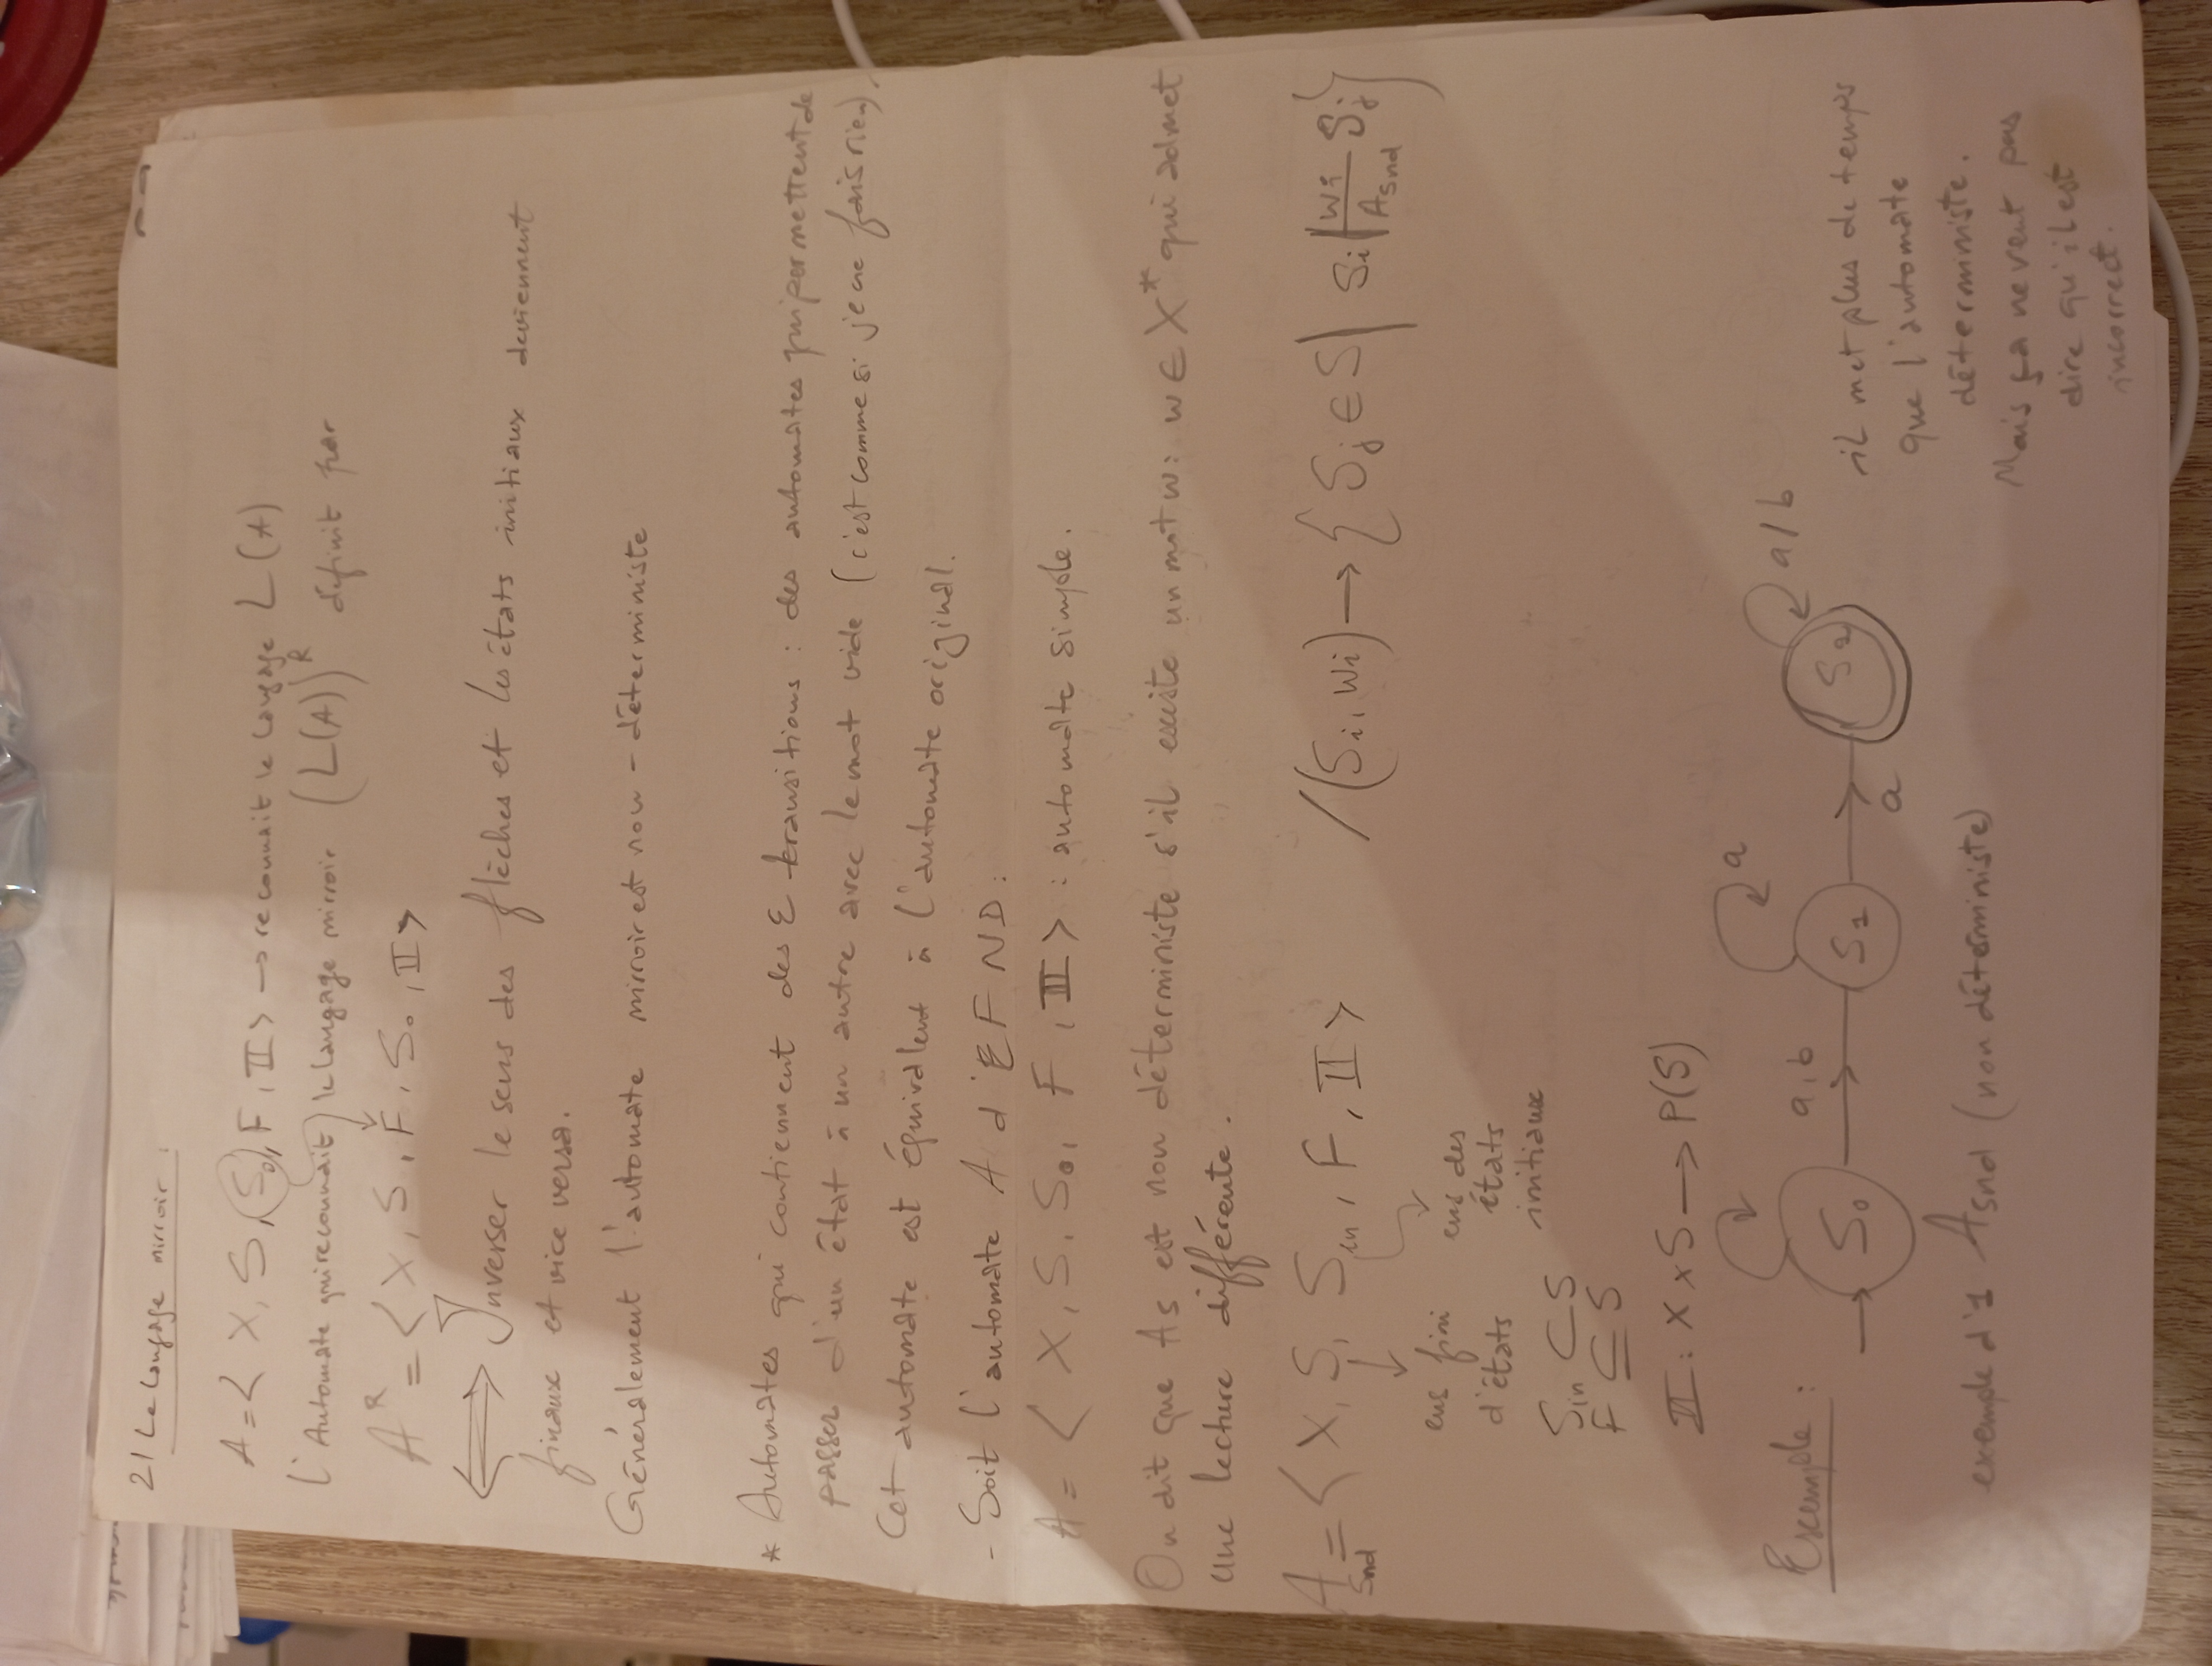 2/ Le langage mirroir :
A = < X, S, S₀, F, II > → reconnait le langage L(A)
l'Automate qui reconnait le langage mirroir (L(A))ᴿ définit par
Aᴿ = < X, S, F, S₀, II >
⟺ Inverser le sens des flèches et les états initiaux deviennent
finaux et vice versa.
Générálement l'automate mirroir est non-déterministe
* Automates qui contiennent des ε transitions : des automates qui permettent de
passer d'un état à un autre avec le mot vide (c'est comme si je ne fais rien).
Cet automate est équivalent à l'automate original.
- Soit l'automate A d'EFND :
A = < X, S, S₀, F, II > : automate simple.
On dit que As est non déterministe s'il existe un mot w : w ∈ X* qui admet
une lecture différente.
A_snd = < X, S, S_in, F, II > /(Si, wi) → { Sj ∈ S | Si |wi/A_snd Sj }
ens fini
d'états
ens des
états
initiaux
S_in ⊂ S
F ⊆ S
II : X x S → P(S)
Exemple :
S₀
a, b
S₁
a
a
S₂
a/b
exemple d'1 A_snd (non déterministe)
il met plus de temps
que l'automate
déterministe.
Mais ça ne veut pas
dire qu'il est
incorrect.